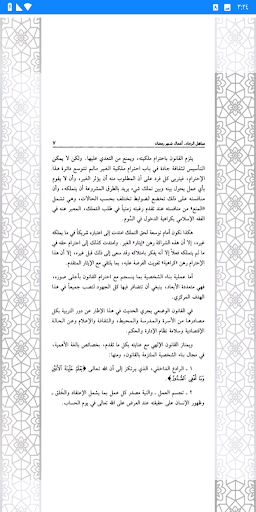 ٣:٢٤
مناهل الرجاء.. أعمال شهر رمضان ٧
يلزم القانون باحترام ملكيته، ويمنع من التعدي عليها. ولكن لا يمكن
التأسيس لثقافة جادة في باب احترام ملكية الغير مالم تتوسع دائرة هذا
الإحترام، فيتربى كل فرد على أن المطلوب منه أن يؤثر الغير، وأن لا يقوم
بأي عمل يحول بينه وبين تملك شيء يريد بالطرق المشروعة أن يتملكه، وأن
منافسته على ذلك تخضع لضوابط تختلف بحسب الحالات، وهي تشمل
«المنع» من منافسته عند تقدم رغبته زمنياً في طلب التملك، المعبر عنه في
الفقه الإسلامي بكراهية الدخول في السَّوم.
هكذا تكون أمام توسعة لحق التملك امتدت إلى اعتباره شريكاً في ما يملكه
غيره، إلا أن هذه الشراكة رهن «إيثار» الغير. وامتدت كذلك إلى احترام حقه في
ما لم يتملكه فعلاً إلا أنه يفكر بامتلاكه وقد سعى إلى ذلك قبل غيره، إلا أن هذا
الإحترام رهن «كراهية» تفويت الفرصة عليه، بما يلتقي مع الإيثار المتقدم.
أما عملية بناء الشخصية بما ينسجم مع احترام القانون بأجلى صوره،
فهي متعددة الأبعاد، ينبغي أن تتضافر فيها كل الجهود لتصب جميعاً في هذا
الهدف المركزي.
في القانون الوضعي يجري الحديث في هذا الإطار عن دور التربية بكل
مصادرها من الأسرة والمدرسة والمحيط، والثقافة والإعلام وعن الحالة
الإقتصادية وسلامة نظام الإدارة والحكم.
ويمتاز القانون الإلهي مع عنايته بكل ما تقدم، بخصائص بالغة الأهمية،
في مجال بناء الشخصية الملتزمة بالقانون، ومنها:
١ ـ الرادع الداخلي، الذي يرتكز إلى أن الله تعالى ﴿يَعْلَمُ خَائِنَةَ الْأَعْيُنِ
وَمَا تُخْفِي الصُّدُورُ﴾.
٢ ـ تجسم العمل ـ والنية مصدر كل عمل بما يشمل الإعتقاد والخُلق ـ
وظهور الإنسان على حقيقته عند العرض على الله تعالى في يوم الحساب.